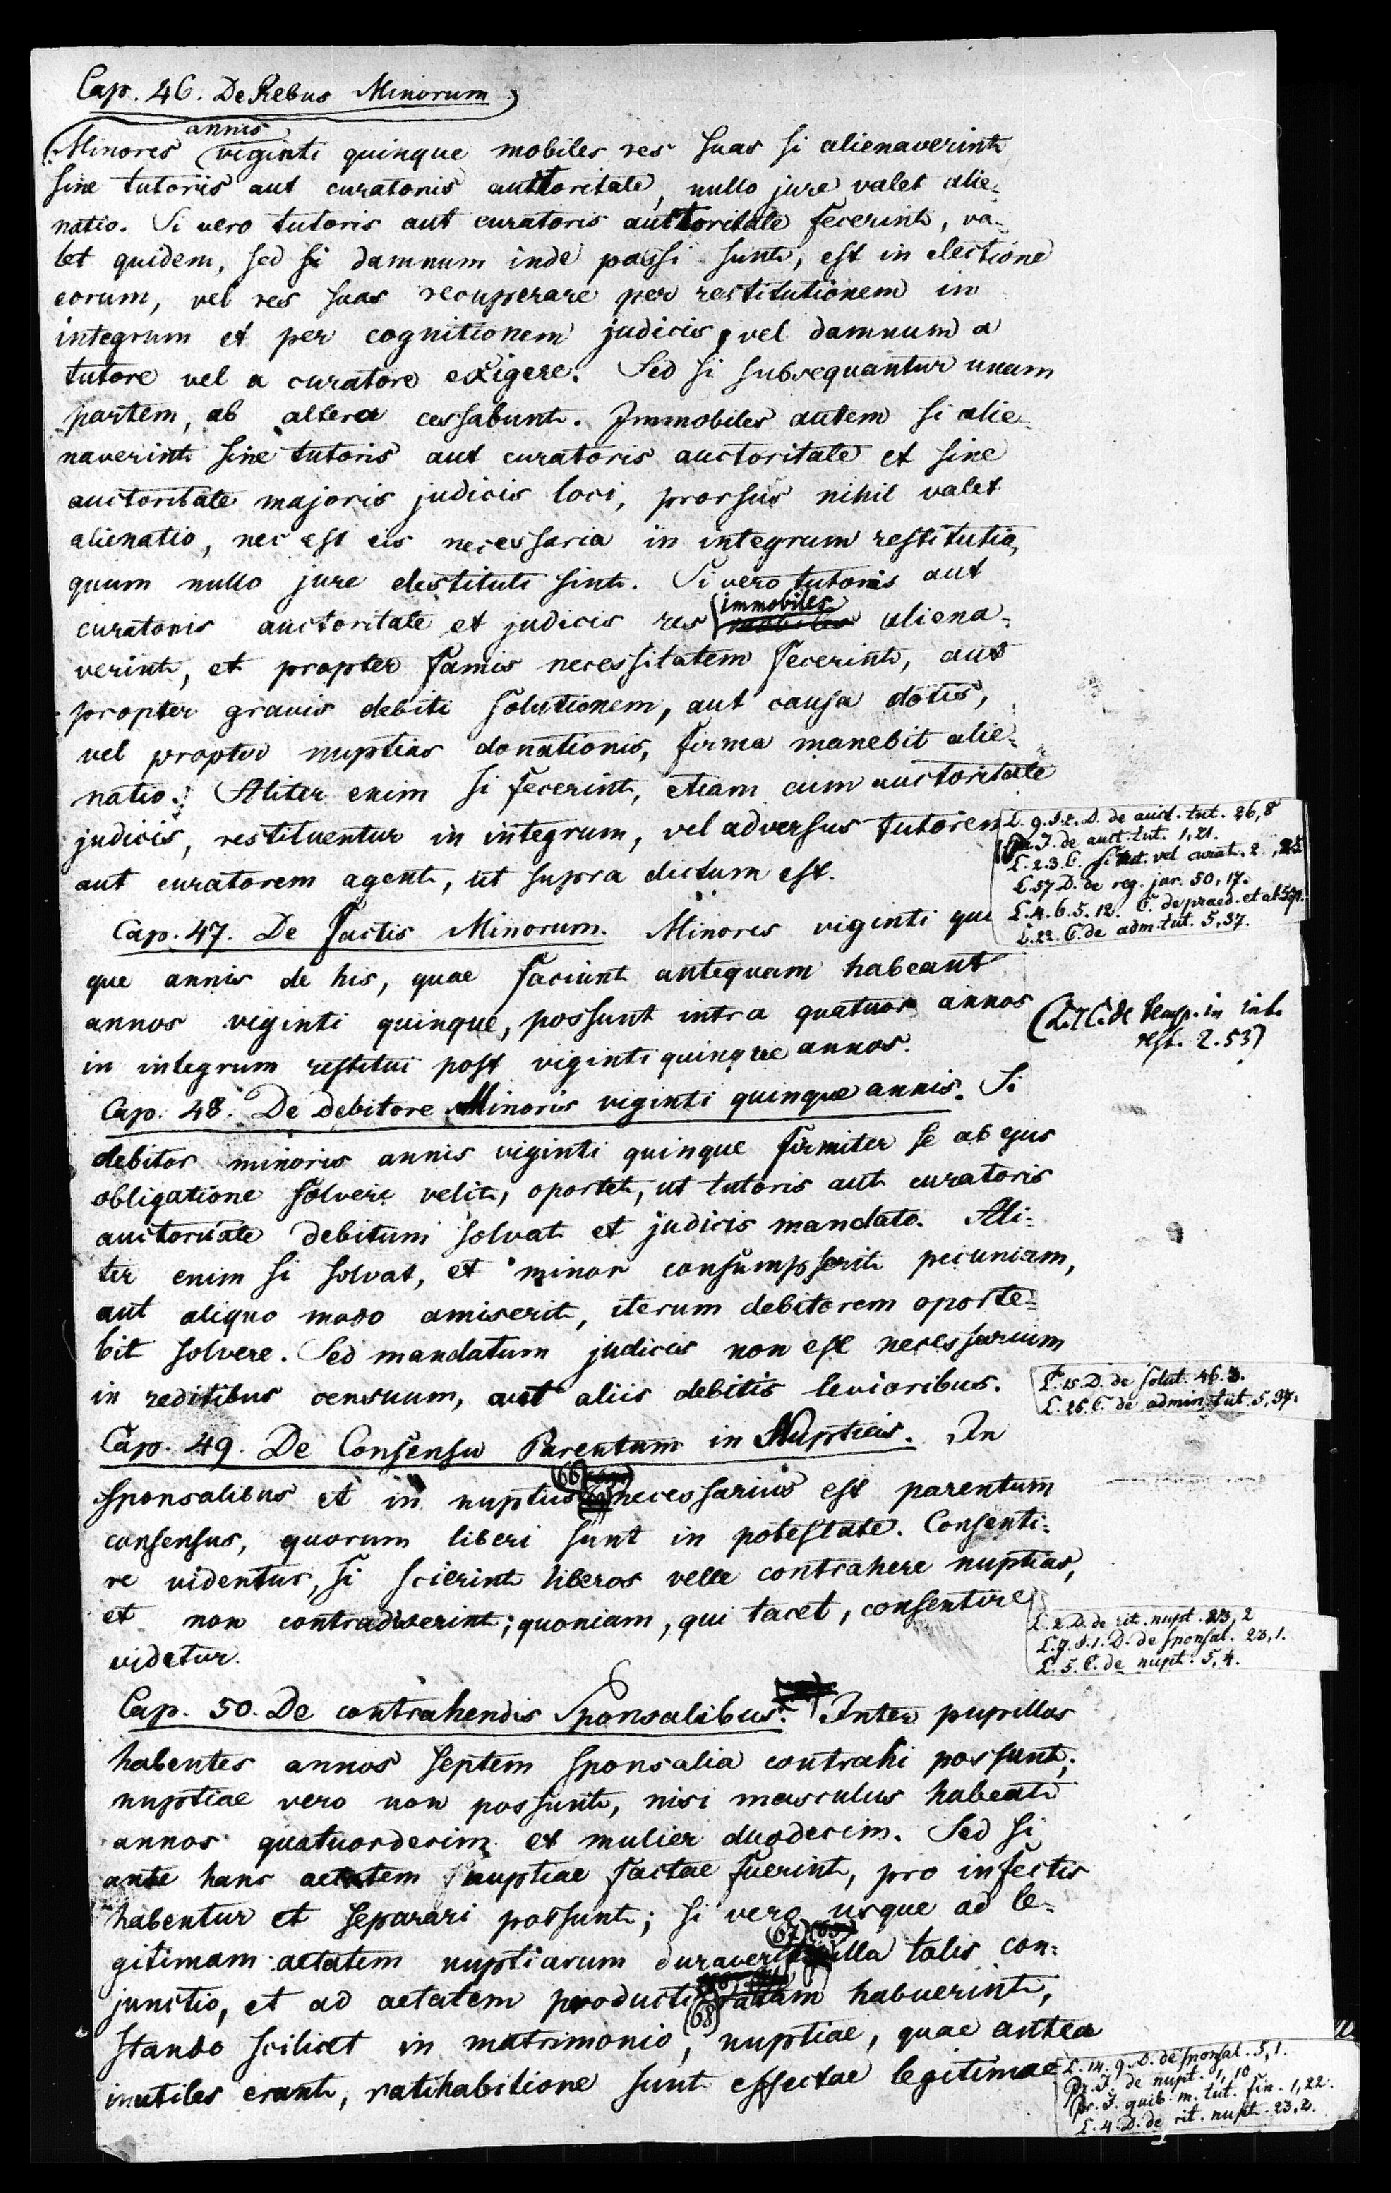 Cap. 46. De Rebus Minorum
annis
Minores viginti quinque mobiles res suas si alienaverint
sine tutoris aut curatoris auctoritate, nullo jure valet alie-
natio. Si vero tutoris aut curatoris auctoritate fecerint, va-
let quidem, sed si damnum inde passi sunt, est in electione
eorum, vel res suas recuperare per restitutionem in
integrum et per cognitionem judicis, vel damnum a
tutore vel a curatore exigere. Sed si subsequantur unam
partem, ab altera cessabunt. Immobiles autem si alie-
naverint sine tutoris aut curatoris auctoritate et sine
auctoritate majoris judicis loci, prorsus nihil valet
alienatio, nec est eis necessaria in integrum restitutio,
quum nullo jure destituti sint. Si vero tutoris aut
immobiles
curatoris auctoritate et judicis res aliena-
verint, et propter famis necessitatem fecerint, aut
propter gravis debiti solutionem, aut causa dotis,
vel propter nuptias donationis, firma manebit alie-
natio. Aliter enim si fecerint, etiam cum auctoritate
judicis, restituentur in integrum, vel adversus tutorem
aut curatorem agent, ut supra dictum est.
L. 9. §. 2. D. de auct. tut. 26,8
Pr. J. de auct. tut. 1,21.
L. 2. 3. C. si tut. vel curat. 2
L. 57 D. de reg. jur. 50,17.
L. 4. 6. 5. 12. C. de praed. et al. 5,71.
L. 22. C. de adm. tut. 5,37.
Cap. 47. De Factis Minorum. Minores viginti qui
que annis de his, quae faciunt antequam habeant
annos viginti quinque, possunt intra quatuor annos
in integrum restitui post viginti quinque annos.
(L. 7 C. de temp. in int.
rest. 2. 53)
Cap. 48. De Debitore Minoris viginti quinque annis. Si
debitor minoris annis viginti quinque firmiter se ab ejus
obligatione solvere velit, oportet, ut tutoris aut curatoris
auctoritate debitum solvat et judicis mandato. Ali-
ter enim si solvat, et minor consumpserit pecuniam,
aut aliquo modo amiserit, iterum debitorem oporte-
bit solvere. Sed mandatum judicis non est necessarium
in reditibus censuum, aut aliis debitis levioribus.
L. 15. D. de solut. 46. 3.
L. 25. C. de admin. tut. 5,37.
Cap. 49. De Consensu Parentum in Nuptiis. In
66
sponsalibus et in nuptiis necessarius est parentum
consensus, quorum liberi sunt in potestate. Consenti-
re videntur, si scierint liberos velle contrahere nuptias,
et non contradixerint; quoniam, qui tacet, consentire
videtur.
L. 2. D. de rit. nupt. 23,2
L. 7. §. 1. D. de sponsal. 23,1.
L. 5. C. de nupt. 5,4.
Cap. 50. De contrahendis Sponsalibus. Inter pupillos
habentes annos septem sponsalia contrahi possunt;
nuptiae vero non possunt, nisi masculus habeat
annos quatuordecim et mulier duodecim. Sed si
ante hanc aetatem nuptiae factae fuerint, pro infectis
habentur et separari possunt; si vero usque ad le-
67
gitimam aetatem nuptiarum duraverit illa talis con-
junctio, et ad aetatem producti ratam habuerint,
68
stando scilicet in matrimonio, nuptiae, quae antea
inutiles erant, ratihabitione sunt effectae legitimae
L. 14. 9. D. de sponsal. 5,1.
Pr. J. de nupt. 1,10
Pr. J. quib. m. tut. fin. 1,22.
L. 4. D. de rit. nupt. 23,2.